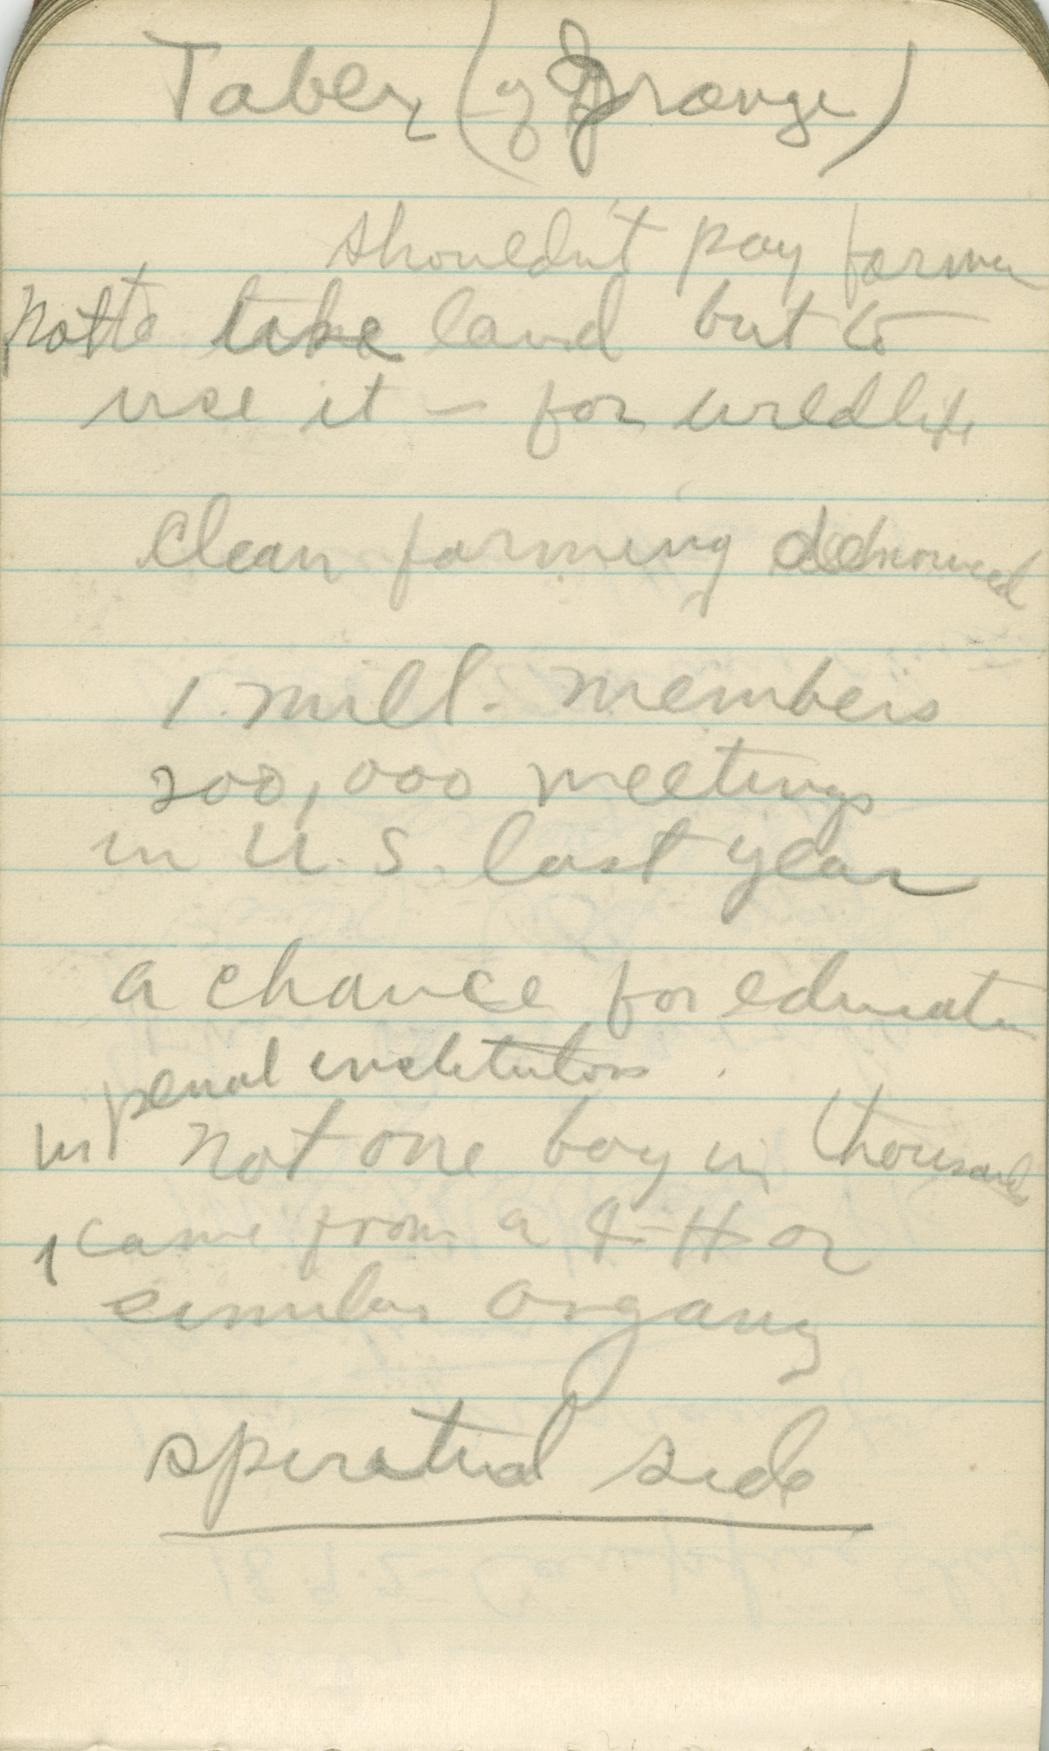 Taber (of Grange)
shouldn't pay farmer
not to take land but to
use it – for wildlife
Clean farming
1 mill. members
200,000 meetings
in U.S. last year
a chance for education
penal institutions
in not one boy in thousands
came from a 4-H or
similar organz
spiritual side